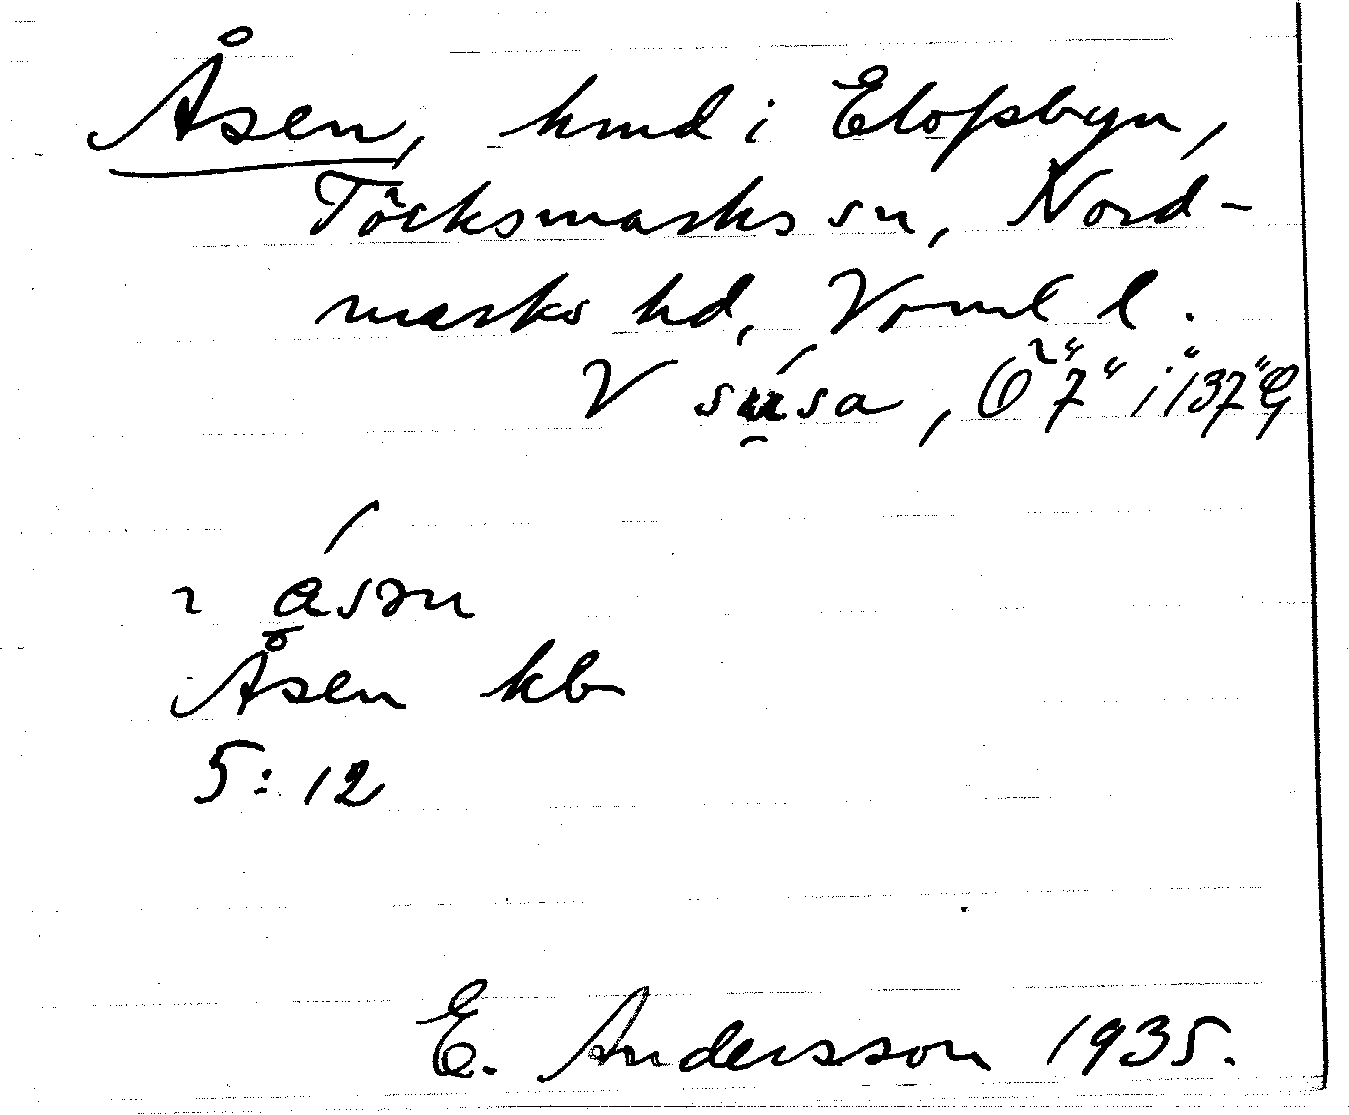 Åsen, hmd i Elofsbyn,
Töcksmarks sn, Nord-
marks hd, Vrml l.
V
Åsen kb
5:12
E. Andersson 1935.